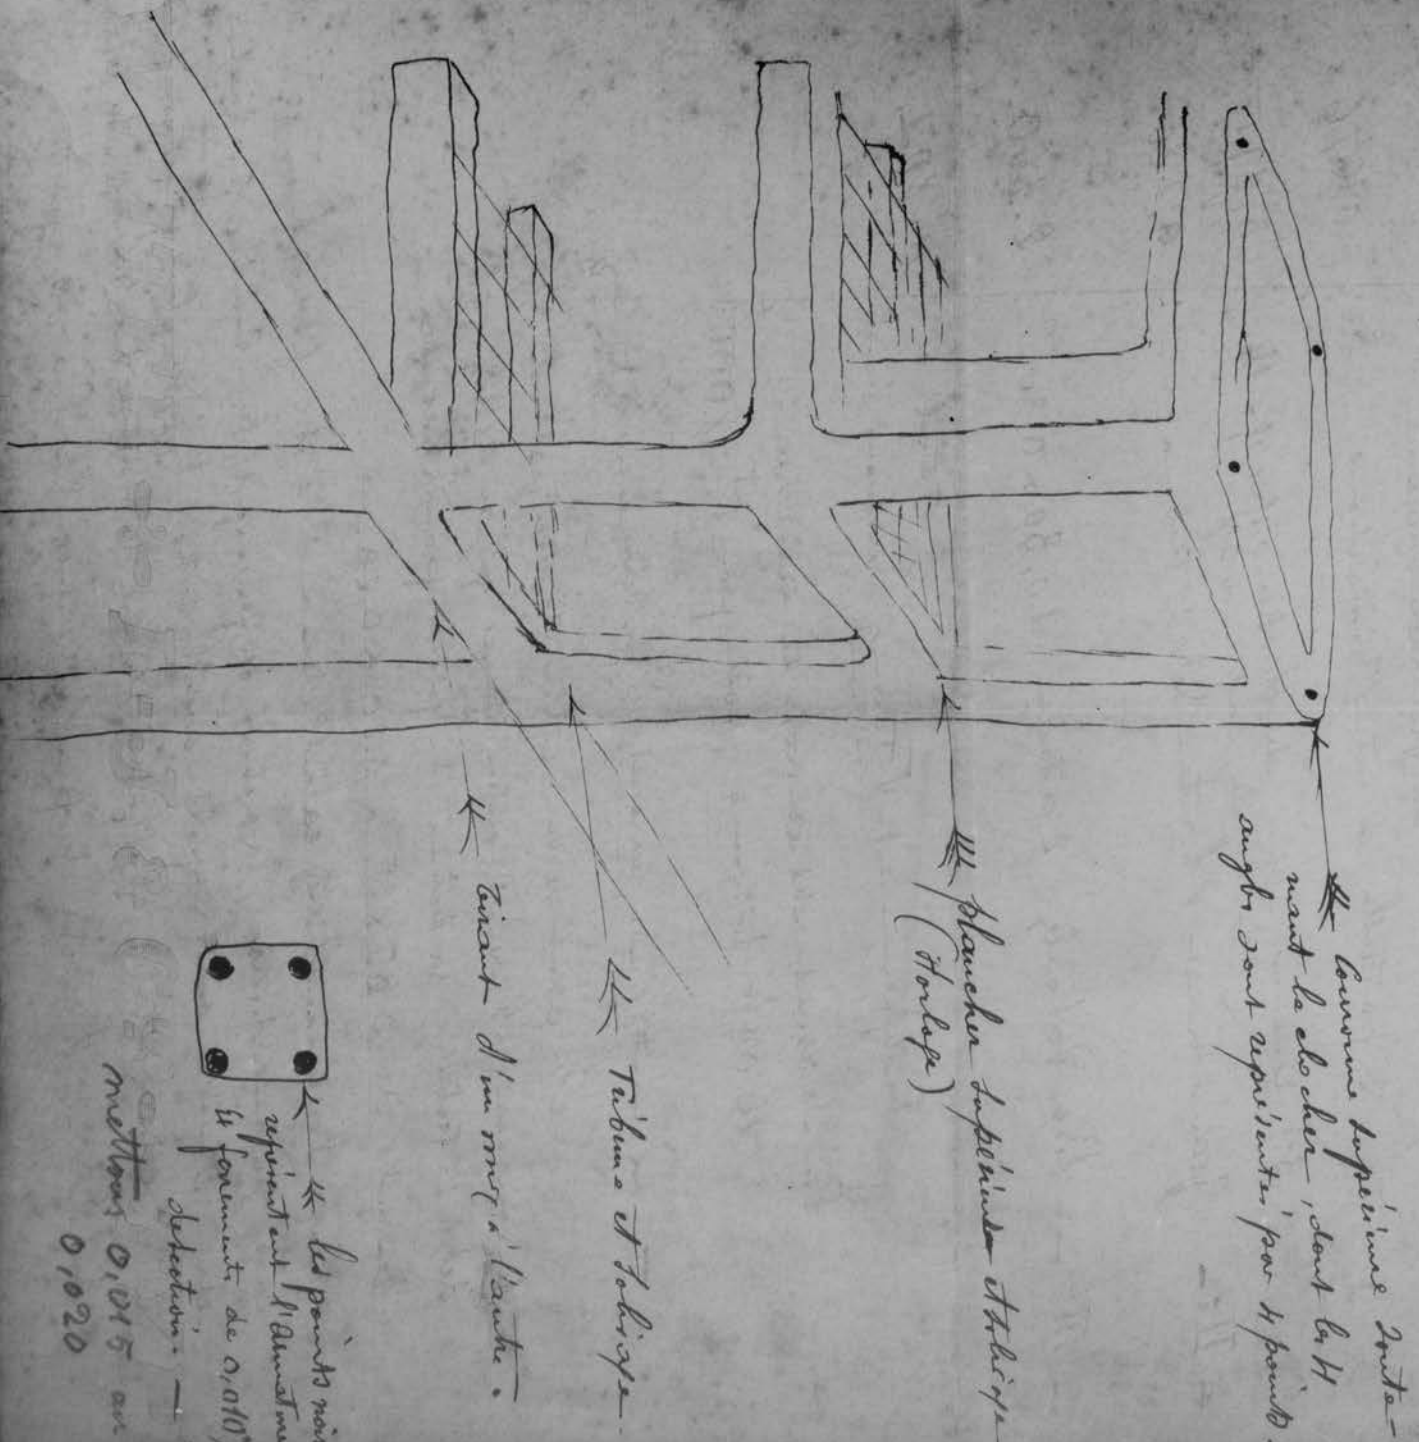 Couronne supérieure soute-
nant le clocher, dont les 4
angles sont représentés par 4 points.
plancher supérieur et solivage
(Horloge)
Tribune et solivage.
Tirant d'un mur à l'autre.
les points noirs
représentent l'armature
4 ferrements de 0,010
de section. —
mettons 0,015 au
0,020